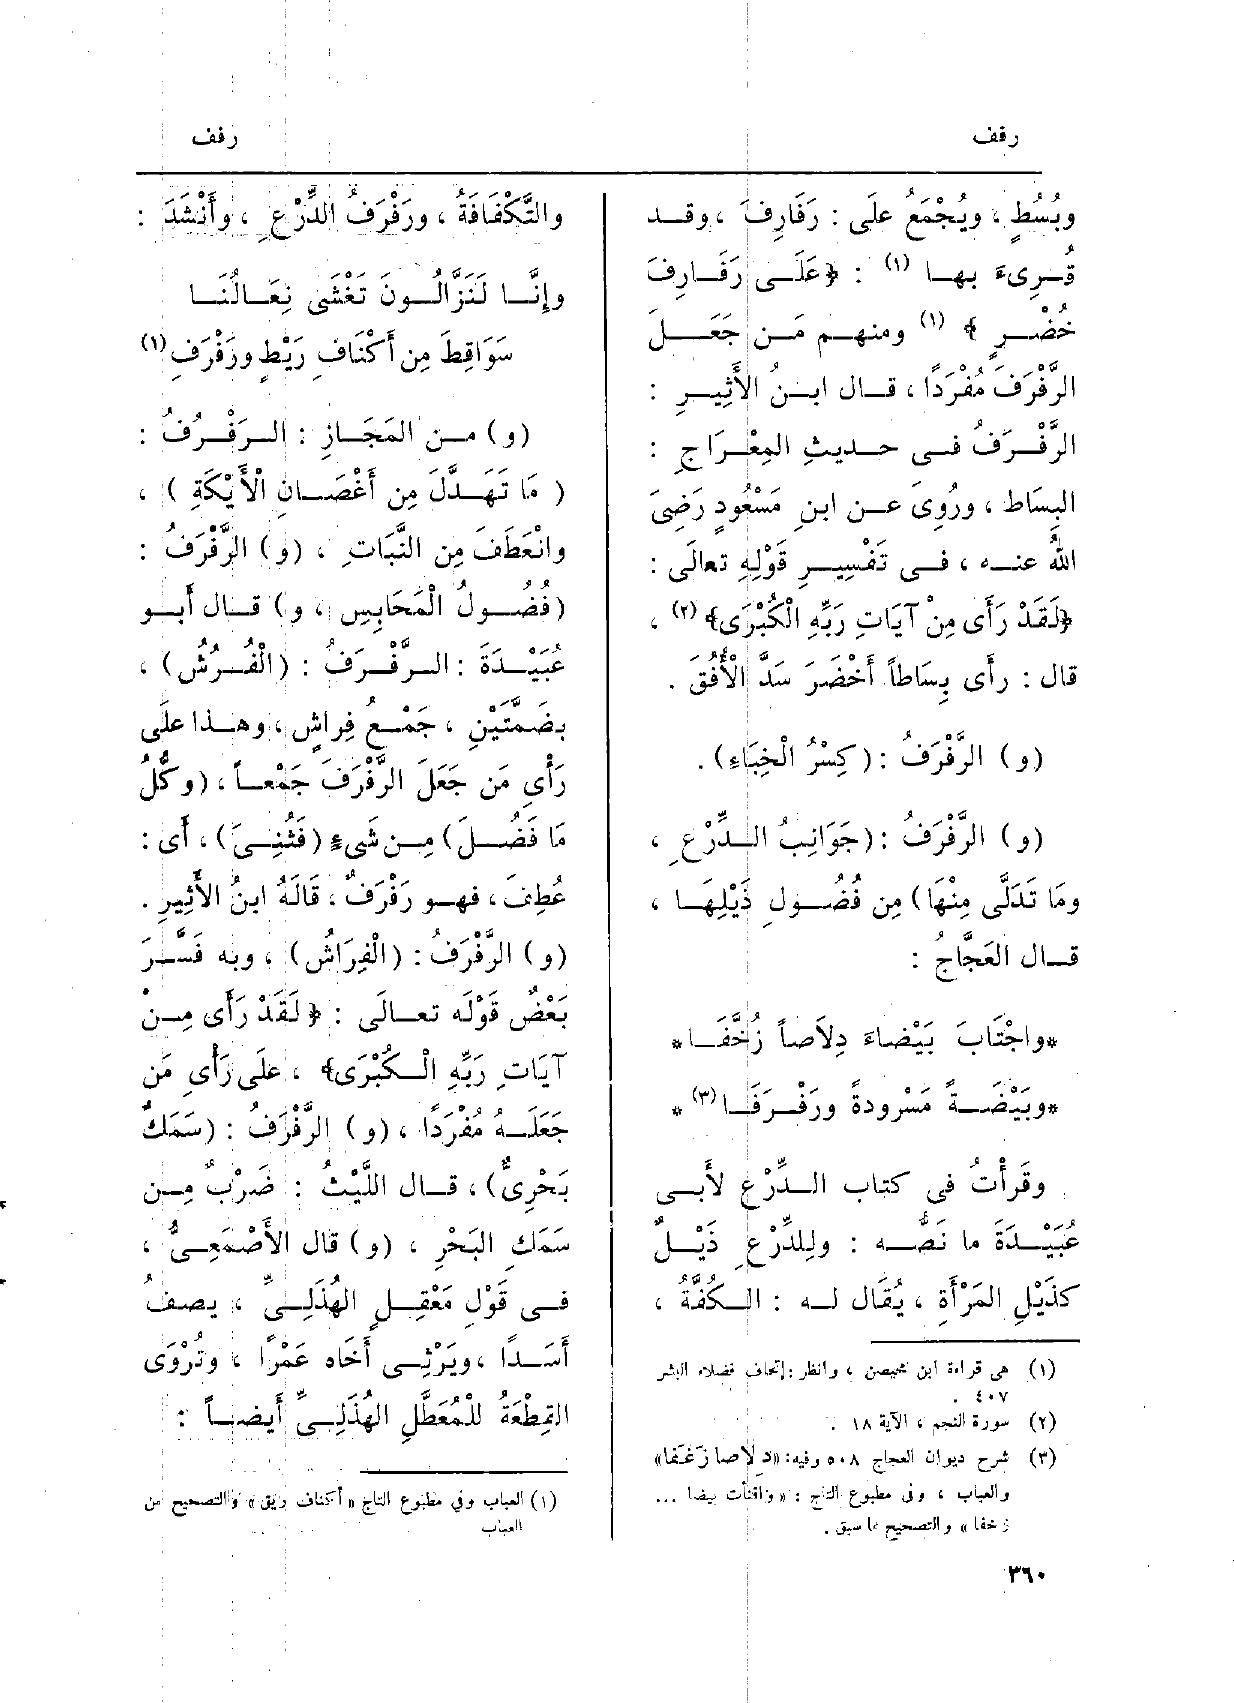 رفف
رفف
وبُسُطٍ ، ويُجْمَع على : رَفَارِفَ ، وقــد
قُــرِىءَ بهــا (١) : ﴿عَلَــى رَفَــارِفَ
خُضْــرٍ ﴾ (١) ومنهــم مَــن جَعَــل
الرَّفْرَفَ مُفْرَدًا ، قــال ابــنُ الأَثِيــرِ :
الرَّفْــرَفُ فــى حــديثِ المِعْــرَاجِ :
البِسَاط ، ورُوِىَ عــن ابنِ مَسْعُودٍ رَضِىَ
اللهُ عنــه ، فــى تَفْسِيــرِ قَوْلِهِ تعالَى :
﴿لَقَدْ رَأَى مِنْ آيَاتِ رَبِّهِ الْكُبْرَى﴾ (٢) ،
قال : رأى بِسَاطاً أَخْضَرَ سَدَّ الْأُفُقَ .
(و) الرَّفْرَفُ : (كِسْرُ الْخِبَاءِ) .
(و) الرَّفْرَفُ : (جَوَانِبُ الــدِّرْعِ ،
ومَا تَدَلَّى مِنْهَا) مِن فُضُــولِ ذَيْلِهَــا ،
قــال العَجَّاجُ :
*واجْتَابَ بَيْضاءَ دِلاَصاً زُخَّفَــا*
*وبَيْضَــةً مَسْرودةً ورَفْــرَفَــا (٣) *
وقَرأْتُ فى كتاب الــدِّرْعِ لأَبــى
عُبَيْــدَةَ ما نَصُّــه : ولِلدِّرْعِ ذَيْــلٌ
كذَيْلِ المَرْأَةِ ، يُقَال لــه : الــكُفَّةُ ،
(١) هى قراءة ابن محيصن ، وانظر : إتحاف فضلاء البشر
٤٠٧ .
(٢) سورة النجم ، الآية ١٨ .
(٣) شرح ديوان العجاج ٥٠٨ وفيه: «دلاصا زغفا»
والعباب ، وفى مطبوع التاج : « واقتأت بيضا ...
زخفا » والتصحيح مما سبق .
والتَّكْفَافَةُ ، ورَفْرَفُ الدِّرْعِ ، وأَنْشَدَ :
وإِنَّــا لَنَزَّالُــونَ تَغْشَى نِعَــالَنَــا
سَوَاقِطَ مِن أَكْنَافِ رَيْطٍ ورَفْرَفِ (١)
(و) مــن المَجَــازِ : الــرَفْــرَفُ :
( مَا تَهَــدَّلَ مِن أَغْصَــانِ الْأَيْكَةِ ) ،
وانْعَطَفَ مِن النَّبَاتِ ، (و) الرَّفْرَفُ :
(فُضُــولُ الْمَحَابِسِ ، و) قــال أَبــو
عُبَيْــدَةَ : الــرَّفْــرَفُ : (الْفُــرُشُ) ،
بضَمَّتَيْنِ ، جَمْــع فِراشٍ ، وهــذا علَى
رَأْىِ مَن جَعَلَ الرَّفْرَفَ جَمْعــاً ، (وكُلُّ
مَا فَضُــلَ) مِــن شَىْءٍ (فَثُنِــىَ) ، أَى :
عُطِفَ ، فهــو رَفْرَفٌ ، قَالَهُ ابنُ الأَثِيرِ .
(و) الرَّفْرَفُ : (الْفِرَاشُ) ، وبه فَسَّــرَ
بَعْضٌ قَوْلَه تعــالَى : ﴿ لَقَدْ رَأَى مِــنْ
آيَاتِ رَبِّهِ الْــكُبْرَى﴾ ، علَى رَأْىِ مَن
جَعَلَــهُ مُفْرَدًا ، (و) الرَّفْرَفُ : (سَمَكٌ
بَحْرِىٌّ) ، قــال اللَّيْثُ : ضَرْبٌ مِــن
سَمَكِ البَحْرِ ، (و) قال الأَصْمَعِــىُّ ،
فــى قَوْلِ مَعْقِــلٍ الهُذَلِــىِّ ، يصفُ
أَسَــدًا ، ويَرْثِــى أَخَاه عَمْرًا ، وتُرْوَى
القِطْعَةُ للمُعَطَّلِ الهُذَلِــىِّ أَيضــاً :
(١) العباب وفى مطبوع التاج « أكناف ريق » والتصحيح من
العباب
٣٦٠